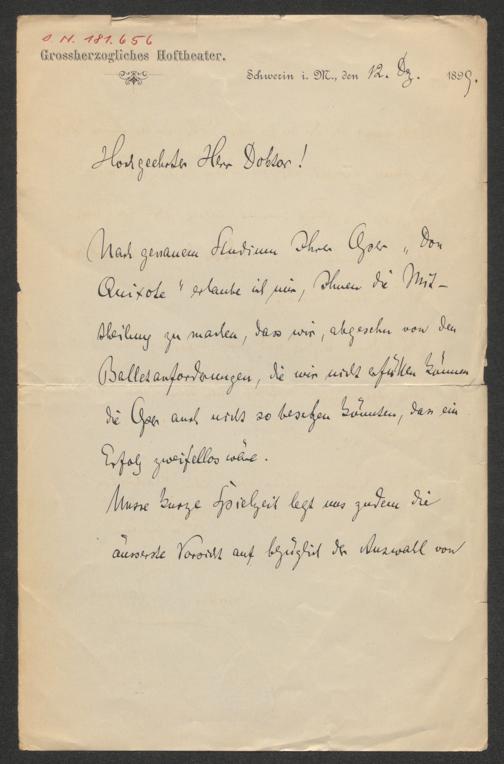 J. N. 181.656
Grossherzogliches Hoftheater.
Schwerin i. M., den 12. Dz. 1899.
Hochgeehrter Herr Doktor!
Nach genauem Studium Ihrer Oper „Don
Quixote" erlaube ich mir, Ihnen die Mit-
theilung zu machen, dass wir, abgesehn von den
Balletanforderungen, die wir nicht erfüllen können,
die Oper auch nicht so besetzen könnten, dass ein
Erfolg zweifellos wäre.
Unsre kurze Spielzeit legt uns zudem die
äusserste Vorsicht auf bezüglich der Auswahl von